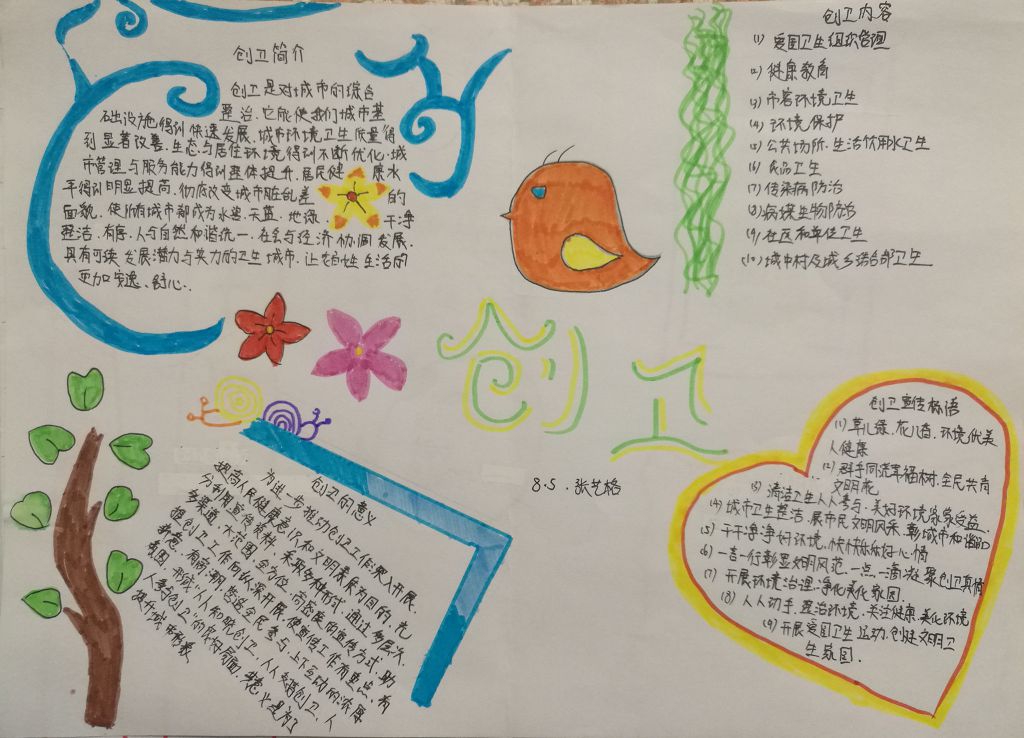 创卫简介
创卫是对城市的综合
整治.它能使我们城市基
础设施得到快速发展,城市环境卫生质量得
到显著改善.生态与居住环境得到不断优化.城
市管理与服务能力得到整体提升.居民健康水
平得到明显提高.彻底改变城市脏乱差的
面貌.使所有城市都成为水碧.天蓝.地绿.干净
整洁.有序.人与自然和谐统一.社会与经济协调发展.
具有可续发展潜力与实力的卫生城市.让老百姓生活的
更加安逸、舒心..
创卫内容
(1) 爱国卫生组织管理
(2) 健康教育
(3) 市容环境卫生
(4) 环境保护
(5) 公共场所.生活饮用水卫生
(6) 食品卫生
(7) 传染病防治
(8) 病媒生物防治
(9) 社区和单位卫生
(10) 城中村及城乡结合部卫生
创卫
8.5.张艺格
创卫的意义
为进一步推动创卫工作深入开展.
提高人民健康意识和文明素质为目的,充
分利用宣传资料,采取多种形式,通过多层次.
多渠道.大范围.全方位.高密度的宣传方式.助
推创卫工作向纵深开展.使宣传工作有重点.有
新意.有高潮.营造全民参与.上下互动的浓厚
氛围.形成"人人知晓创卫.人人支持创卫.人
人参与创卫"的良好局面.意义是为了
提升城市形象
创卫宣传标语
(1) 草儿绿.花儿香.环境优美
人健康
(2) 群手同浇幸福树.全民共育
文明花
(3) 清洁卫生人人参与.美好环境家家受益.
(4) 城市卫生整洁.展市民文明风采.彰城市和谐
(5) 干干净净好环境.快快乐乐好心情
(6) 一言一行彰显文明风范.一点一滴凝聚创卫真情
(7) 开展环境治理.净化美化氛围.
(8) 人人动手.整治环境.关注健康.美化环境
(9) 开展爱国卫生运动.创建文明卫
生氛围.